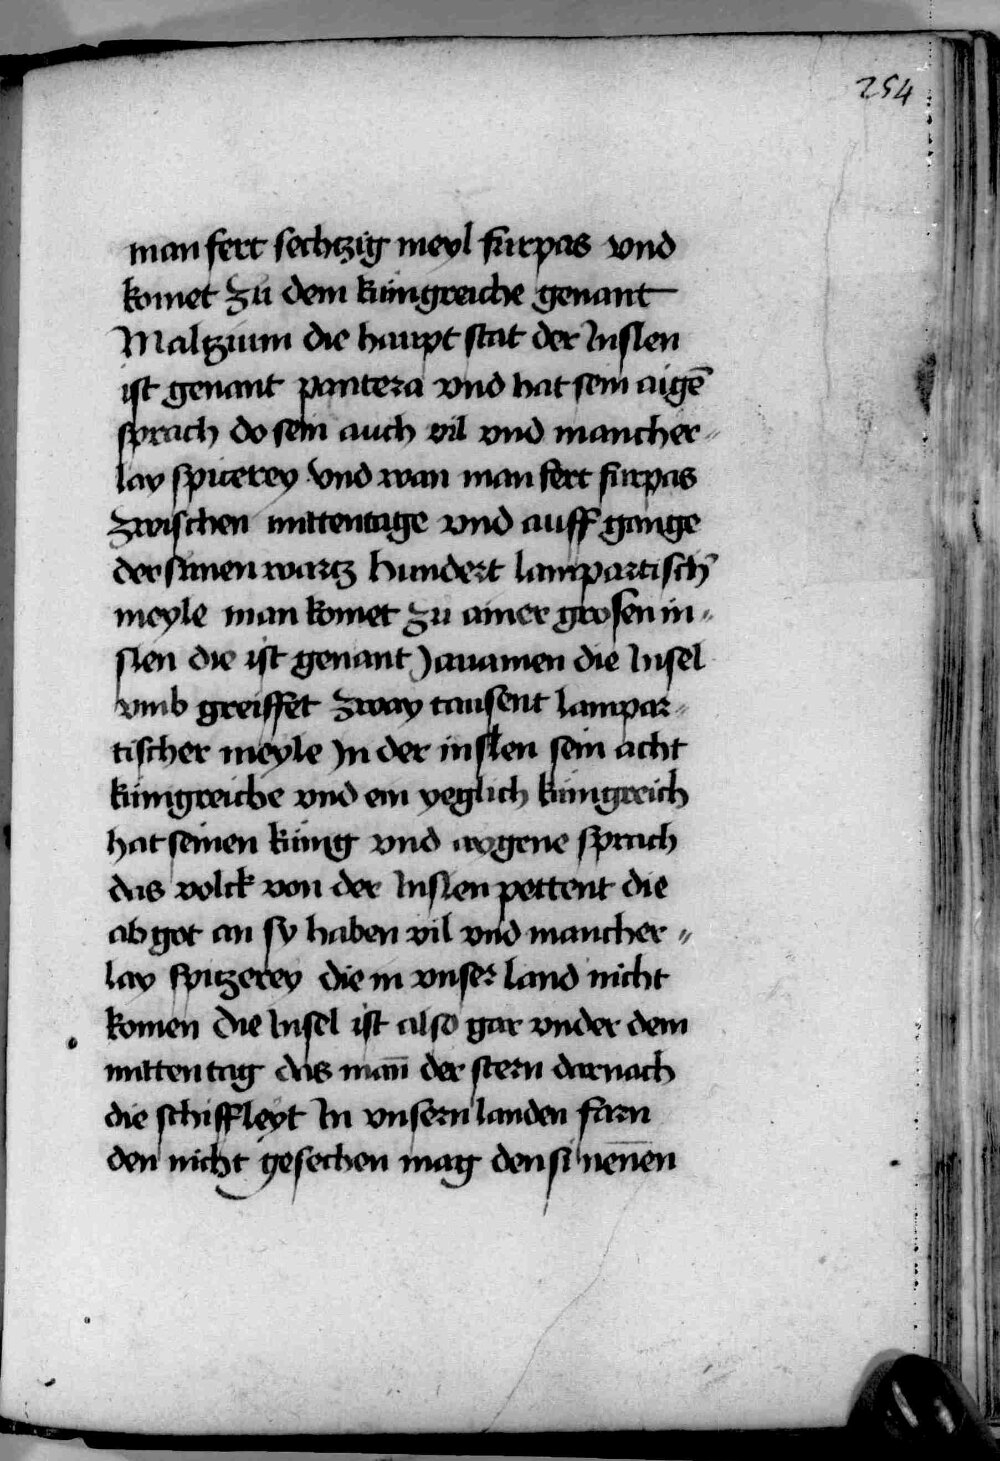 254
man fert sechtzig meyl furpas vnd
komet zu dem küngreiche genant
Maltzium die haupt stat der Inslen
ist genant pantera vnd hat sein aigē
sprach do sein auch vil vnd mancher„
lay spicerey Vnd wan man fert furpas
zwischen mittentage vnd auff gange
der sunen wartz hundert lampartisch̄
meyle man komet zu ainer grosen in„
slen die ist genant Jauamen die Insel
vmb greiffet zway tausent lampar„
tischer meyle In der inslen sein acht
küngreiche vnd ein yeglich küngreich
hat seinen küng vnd aygene sprach
das volck von der Inslen pettent die
ab got an sy haben vil vnd mancher„
lay spitzerey die in vnser land nicht
komen Die Insel ist also gar vnder dem
mitten tag das man̄ der stern darnach
die schiffleyt In vnsern landen farn
den nicht gesechen mag den si nen̄en